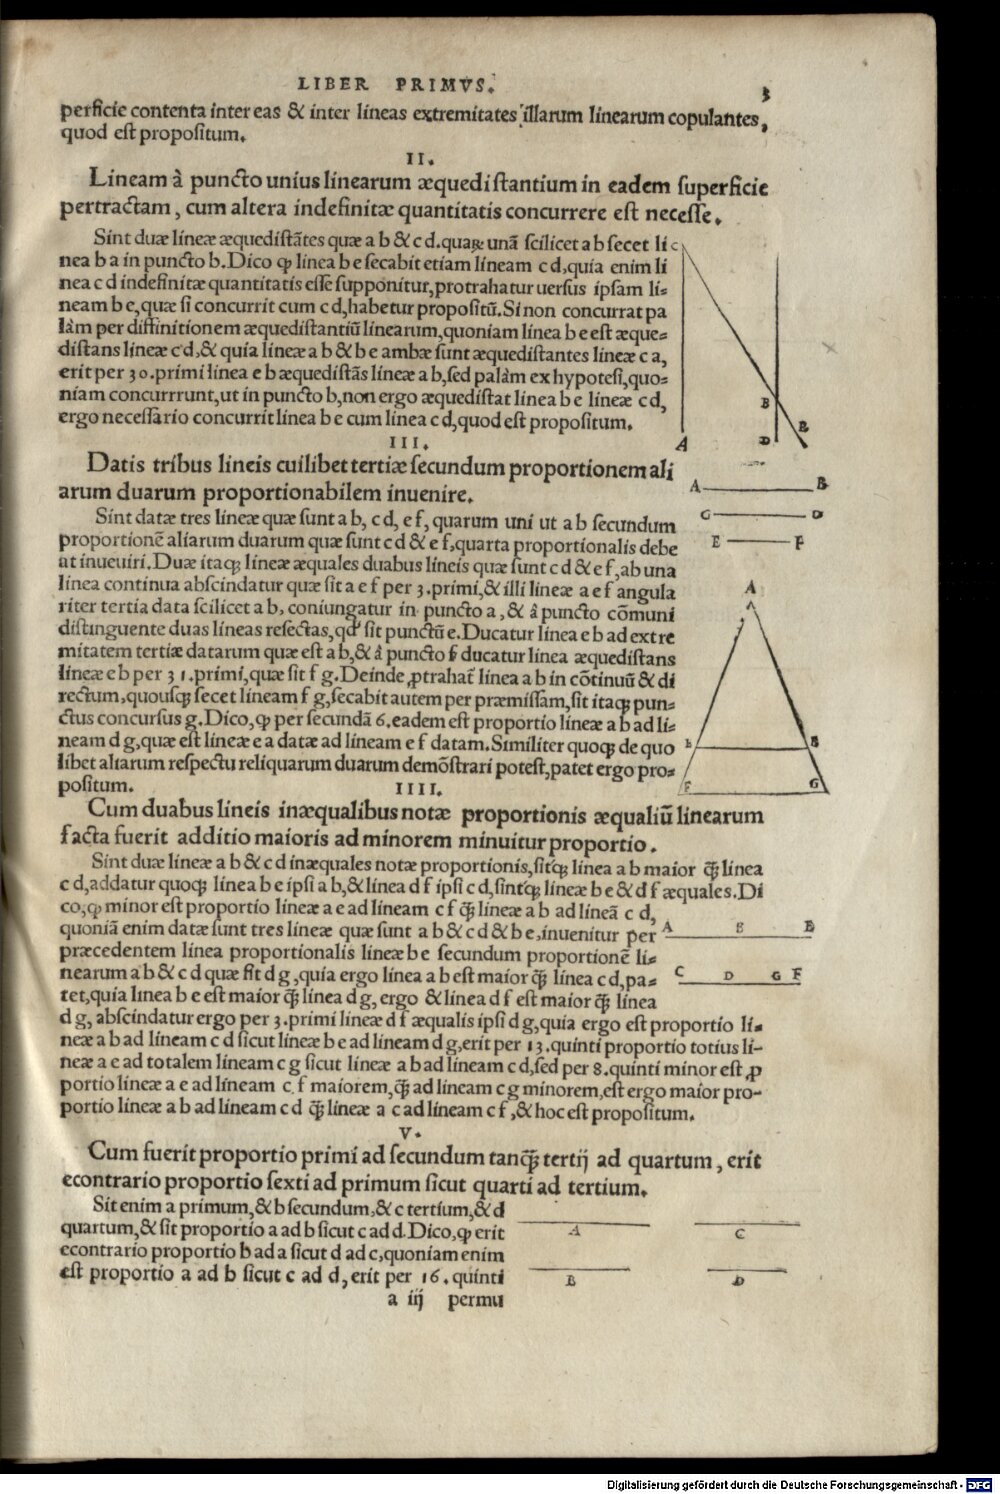 LIBER PRIMVS. 3
perficie contenta inter eas & inter lineas extremitates illarum linearum copulantes,
quod est propositum.
II.
Lineam à puncto unius linearum æquedistantium in eadem superficie
pertractam, cum altera indefinitæ quantitatis concurrere est necesse.
Sint duæ lineæ æquedistãtes quæ a b & c d. quaꝝ unã scilicet a b secet li
nea b a in puncto b. Dico ꝙ linea b e secabit etiam lineam c d, quia enim li
nea c d indefinitæ quantitatis esse supponitur, protrahatur uersus ipsam li=
neam b e, quæ si concurrit cum c d, habetur propositũ. Si non concurrat pa
làm per diffinitionem æquedistantiũ linearum, quoniam linea b e est æque=
distans lineæ c d, & quia lineæ a b & b e ambæ sunt æquedistantes lineæ c a,
erit per 30. primi linea e b æquedistãs lineæ a b, sed palàm ex hypotesi, quo=
niam concurrrunt, ut in puncto b, non ergo æquedistat linea b e lineæ c d,
ergo necessario concurrit linea b e cum linea c d, quod est propositum.
C
B
A
D
E
III.
Datis tribus lineis cuilibet tertiæ secundum proportionem ali
arum duarum proportionabilem inuenire.
Sint datæ tres lineæ quæ sunt a b, c d, e f, quarum uni ut a b secundum
proportionẽ aliarum duarum quæ sunt c d & e f, quarta proportionalis debe
at inueuiri. Duæ itaꝗ lineæ æquales duabus lineis quæ sunt c d & e f, ab una
linea continua abscindatur quæ sit a e f per 3. primi, & illi lineæ a e f angula
riter tertia data scilicet a b, coniungatur in puncto a, & à puncto cõmuni
distinguente duas lineas resectas, qđ sit punctũ e. Ducatur linea e b ad extre
mitatem tertiæ datarum quæ est a b, & à puncto f ducatur linea æquedistans
lineæ e b per 31. primi, quæ sit f g. Deinde ꝓtrahat̃ linea a b in cõtinuũ & di
rectum, quousꝗ secet lineam f g, secabit autem per præmissam, sit itaꝗ pun=
ctus concursus g. Dico, ꝙ per secundã 6. eadem est proportio lineæ a b ad li=
neam d g, quæ est lineæ e a datæ ad lineam e f datam. Similiter quoꝗ de quo
libet aliarum respectu reliquarum duarum demõstrari potest, patet ergo pro=
positum.
A B
C D
E F
A
E B
F G
IIII.
Cum duabus lineis inæqualibus notæ proportionis æqualiũ linearum
facta fuerit additio maioris ad minorem minuitur proportio.
Sint duæ lineæ a b & c d inæquales notæ proportionis, sitꝗ linea a b maior ꝗ̃ linea
c d, addatur quoꝗ linea b e ipsi a b, & linea d f ipsi c d, sintꝗ lineæ b e & d f æquales. Di
co, ꝙ minor est proportio lineæ a e ad lineam c f ꝗ̃ lineæ a b ad lineã c d,
quoniã enim datæ sunt tres lineæ quæ sunt a b & c d & b e, inuenitur per
præcedentem linea proportionalis lineæ b e secundum proportionẽ li=
nearum a b & c d quæ sit d g, quia ergo linea a b est maior ꝗ̃ linea c d, pa=
tet, quia linea b e est maior ꝗ̃ linea d g, ergo & linea d f est maior ꝗ̃ linea
d g, abscindatur ergo per 3. primi lineæ d f æqualis ipsi d g, quia ergo est proportio li=
neæ a b ad lineam c d sicut lineæ b e ad lineam d g, erit per 13. quinti proportio totius li-
neæ a e ad totalem lineam c g sicut lineæ a b ad lineam c d, sed per 8. quinti minor est ꝓ
portio lineæ a e ad lineam c f maiorem, ꝗ̃ ad lineam c g minorem, est ergo maior pro-
portio lineæ a b ad lineam c d ꝗ̃ lineæ a c ad lineam c f, & hoc est propositum.
A B E
C D G F
V.
Cum fuerit proportio primi ad secundum tanꝗ̃ tertij ad quartum, erit
econtrario proportio sexti ad primum sicut quarti ad tertium.
Sit enim a primum, & b secundum, & c tertium, & d
quartum, & sit proportio a ad b sicut c ad d. Dico, ꝙ erit
econtrario proportio b ad a sicut d ad c, quoniam enim
est proportio a ad b sicut c ad d, erit per 16. quinti
A C
B D
a iij permu
Digitalisierung gefördert durch die Deutsche Forschungsgemeinschaft - DFG